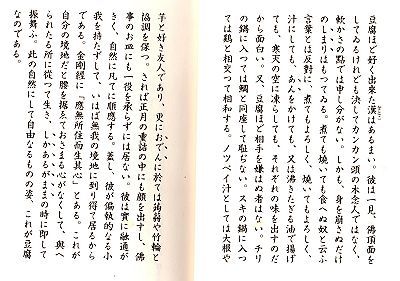 豆腐ほど好く出來た漢はあるまい。彼は一見、佛頂面を
してゐるけれども決してカンカン頭の木念人ではなく、
軟かさの點では申し分がない。しかも、身を崩さぬだけ
のしまりはもつてゐる。煮ても燒いても食へぬ奴と云ふ
言葉とは反對に、煮てもよろしく、燒いてもよろしく、
汁にしても、あんをかけても、又は沸きたぎる油で揚げ
ても、寒天の空に凍らしても、それぞれの味を出すのだ
から面白い。又、豆腐ほど相手を嫌はぬ者はない。チリ
の鍋に入つては鯛と同座して恥ぢない。スキの鍋に入つ
ては鶏と相交つて相和する。ノツペイ汁としては大根や
芋と好き友人であり、更におでんに於ては蒟蒻や竹輪と
協調を保つ。されば正月の重詰の中にも顔を出すし、佛
事のお皿にも一役を承らずには居ない。彼は實に融通が
きく、自然に凡てに順應する。蓋し、彼が偏執的なる小
我を持たずして、いはば無我の境地に到り得て居るから
である。金剛經に「應無所住而生其心」とある。これが
自分の境地だと腰を据ゑておさまる心がなくして、與へ
られたる所に從つて生き、しかあるがままの時に即して
振舞ふ。此の自然にして自由なるものの姿、これが豆腐
なのである。